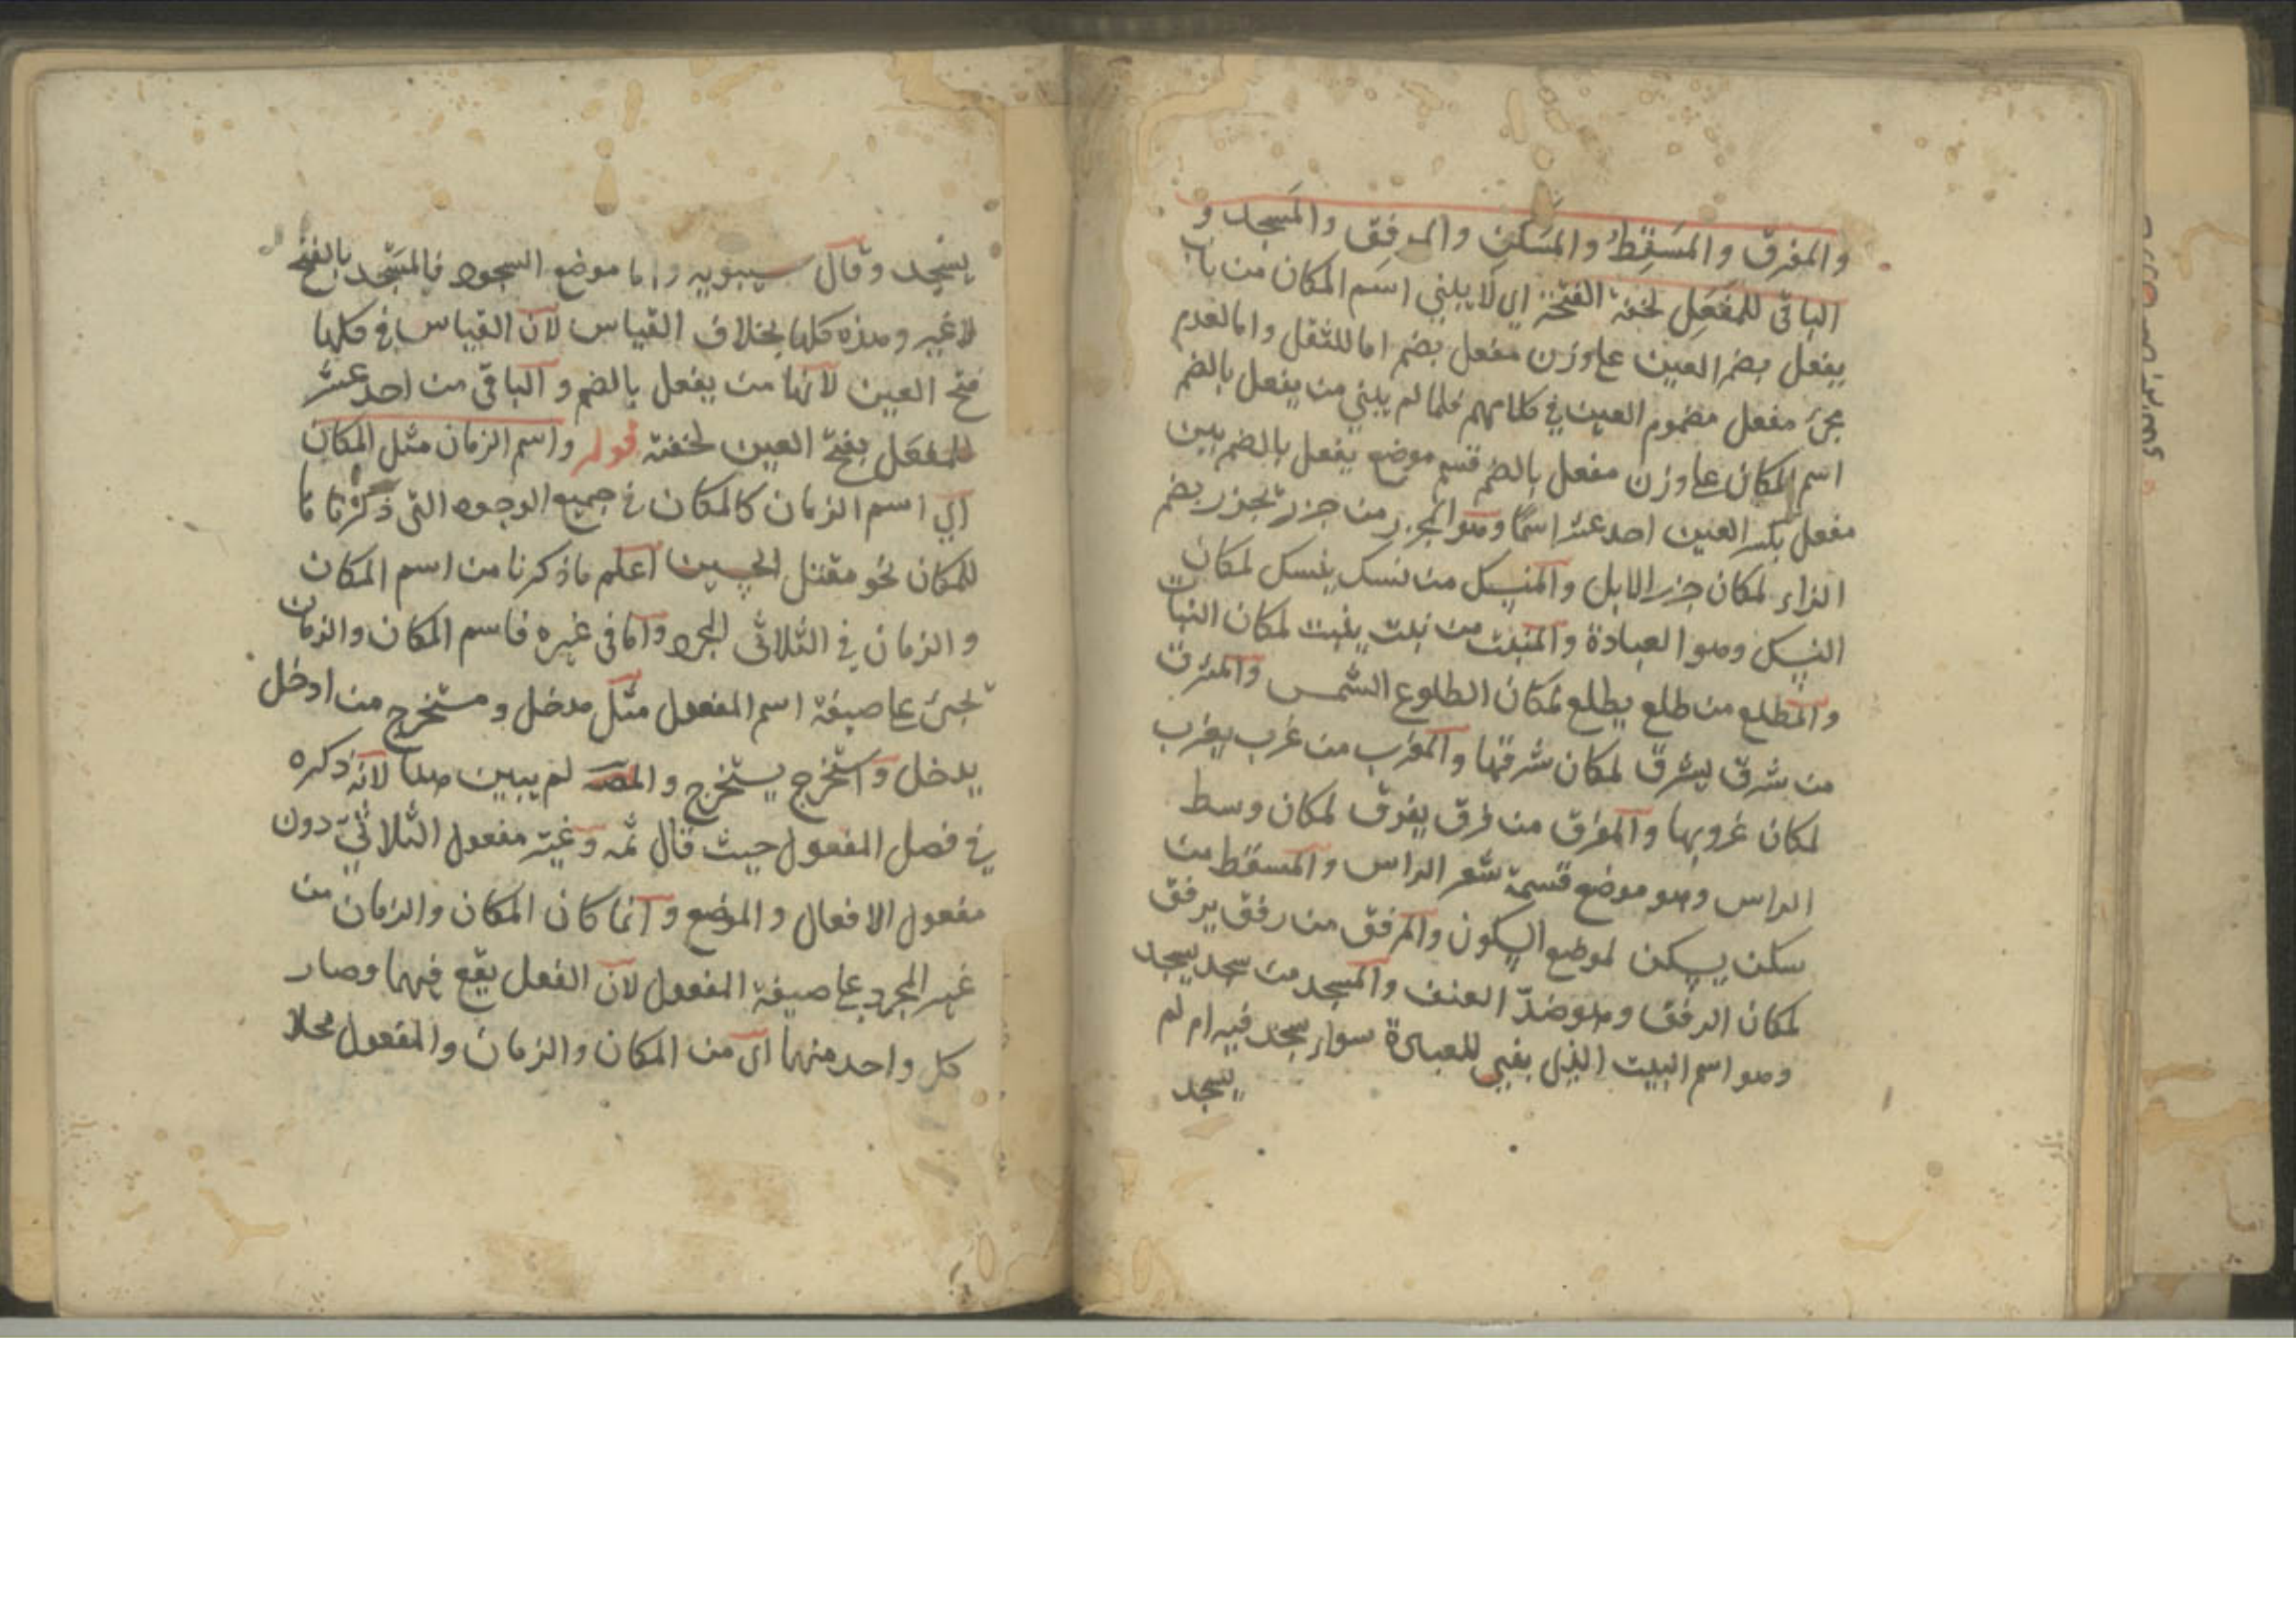 والمفرق والمسقِط والمسكِن والمرفِق والمَسجد و
الباقى للمَفعَل لخفة الفتحة اى لا يبنى اسم المكان من باب
يفعل بضم العين على وزن مفعل بضم اما للثقل واما لعدم
مجئ مفعل مضموم العين فى كلامهم فلما لم يبنى من يفعل بالضم
اسم المكان على وزن مفعل بالضم قسم موضع يفعل بالضم بين
مفعل بكسر العين احد عشر اسمًا وهو المجزر من جزر يجزر بضم
الزاء لمكان جزر الابل والمنسك من نسك ينسك لمكان
النسك وهو العبادة والمنبت من نبت ينبت لمكان النبات
والمطلع من طلع يطلع لمكان الطلوع الشمس والمشرق
من شرق يشرق لمكان شرقها والمغرب من غرب يغرب
لمكان غروبها والمفرق من فرق يفرق لمكان وسط
الراس وهو موضع قسمة شعر الراس والمسقط من
سكن يسكن لموضع السكون والمرفق من رفق يرفق
لمكان الرفق وهو ضدّ العنف والمسجد من سجد يسجد
وهو اسم البيت الذى بنى للعبادة سواء سجد فيه ام لم
يسجد
يسجد وقال سيبويه واما موضع السجود فالمسَجد بالفتح
لا غير وهذه كلها بخلاف القياس لان القياس فى كلها
فتح العين لانها من يفعل بالضم والباقى من احد عشر
للمفعَل بفتح العين لخفته قوله واسم الزمان مثل المكان
اى اسم الزمان كالمكان فى جميع الوجوه التى ذكرنا
للمكان نحو مقتل الحسين اعلم ما ذكرنا من اسم المكان
والزمان فى الثلاثى المجرد واما فى غيره فاسم المكان والزمان
تجئ على صيغة اسم المفعول مثل مدخل ومستخرج من ادخل
يدخل واستخرج يستخرج والمصـ لم يبين هذا لانه ذكره
فى فصل المفعول حيث قال ثمه وغيّر مفعول الثلاثى دون
مفعول الافعال والموضع وانما كان المكان والزمان من
غير المجرد على صيغة المفعول لان الفعل يقع فيهما وصار
كل واحد منهما اى من المكان والزمان والمفعول محلا